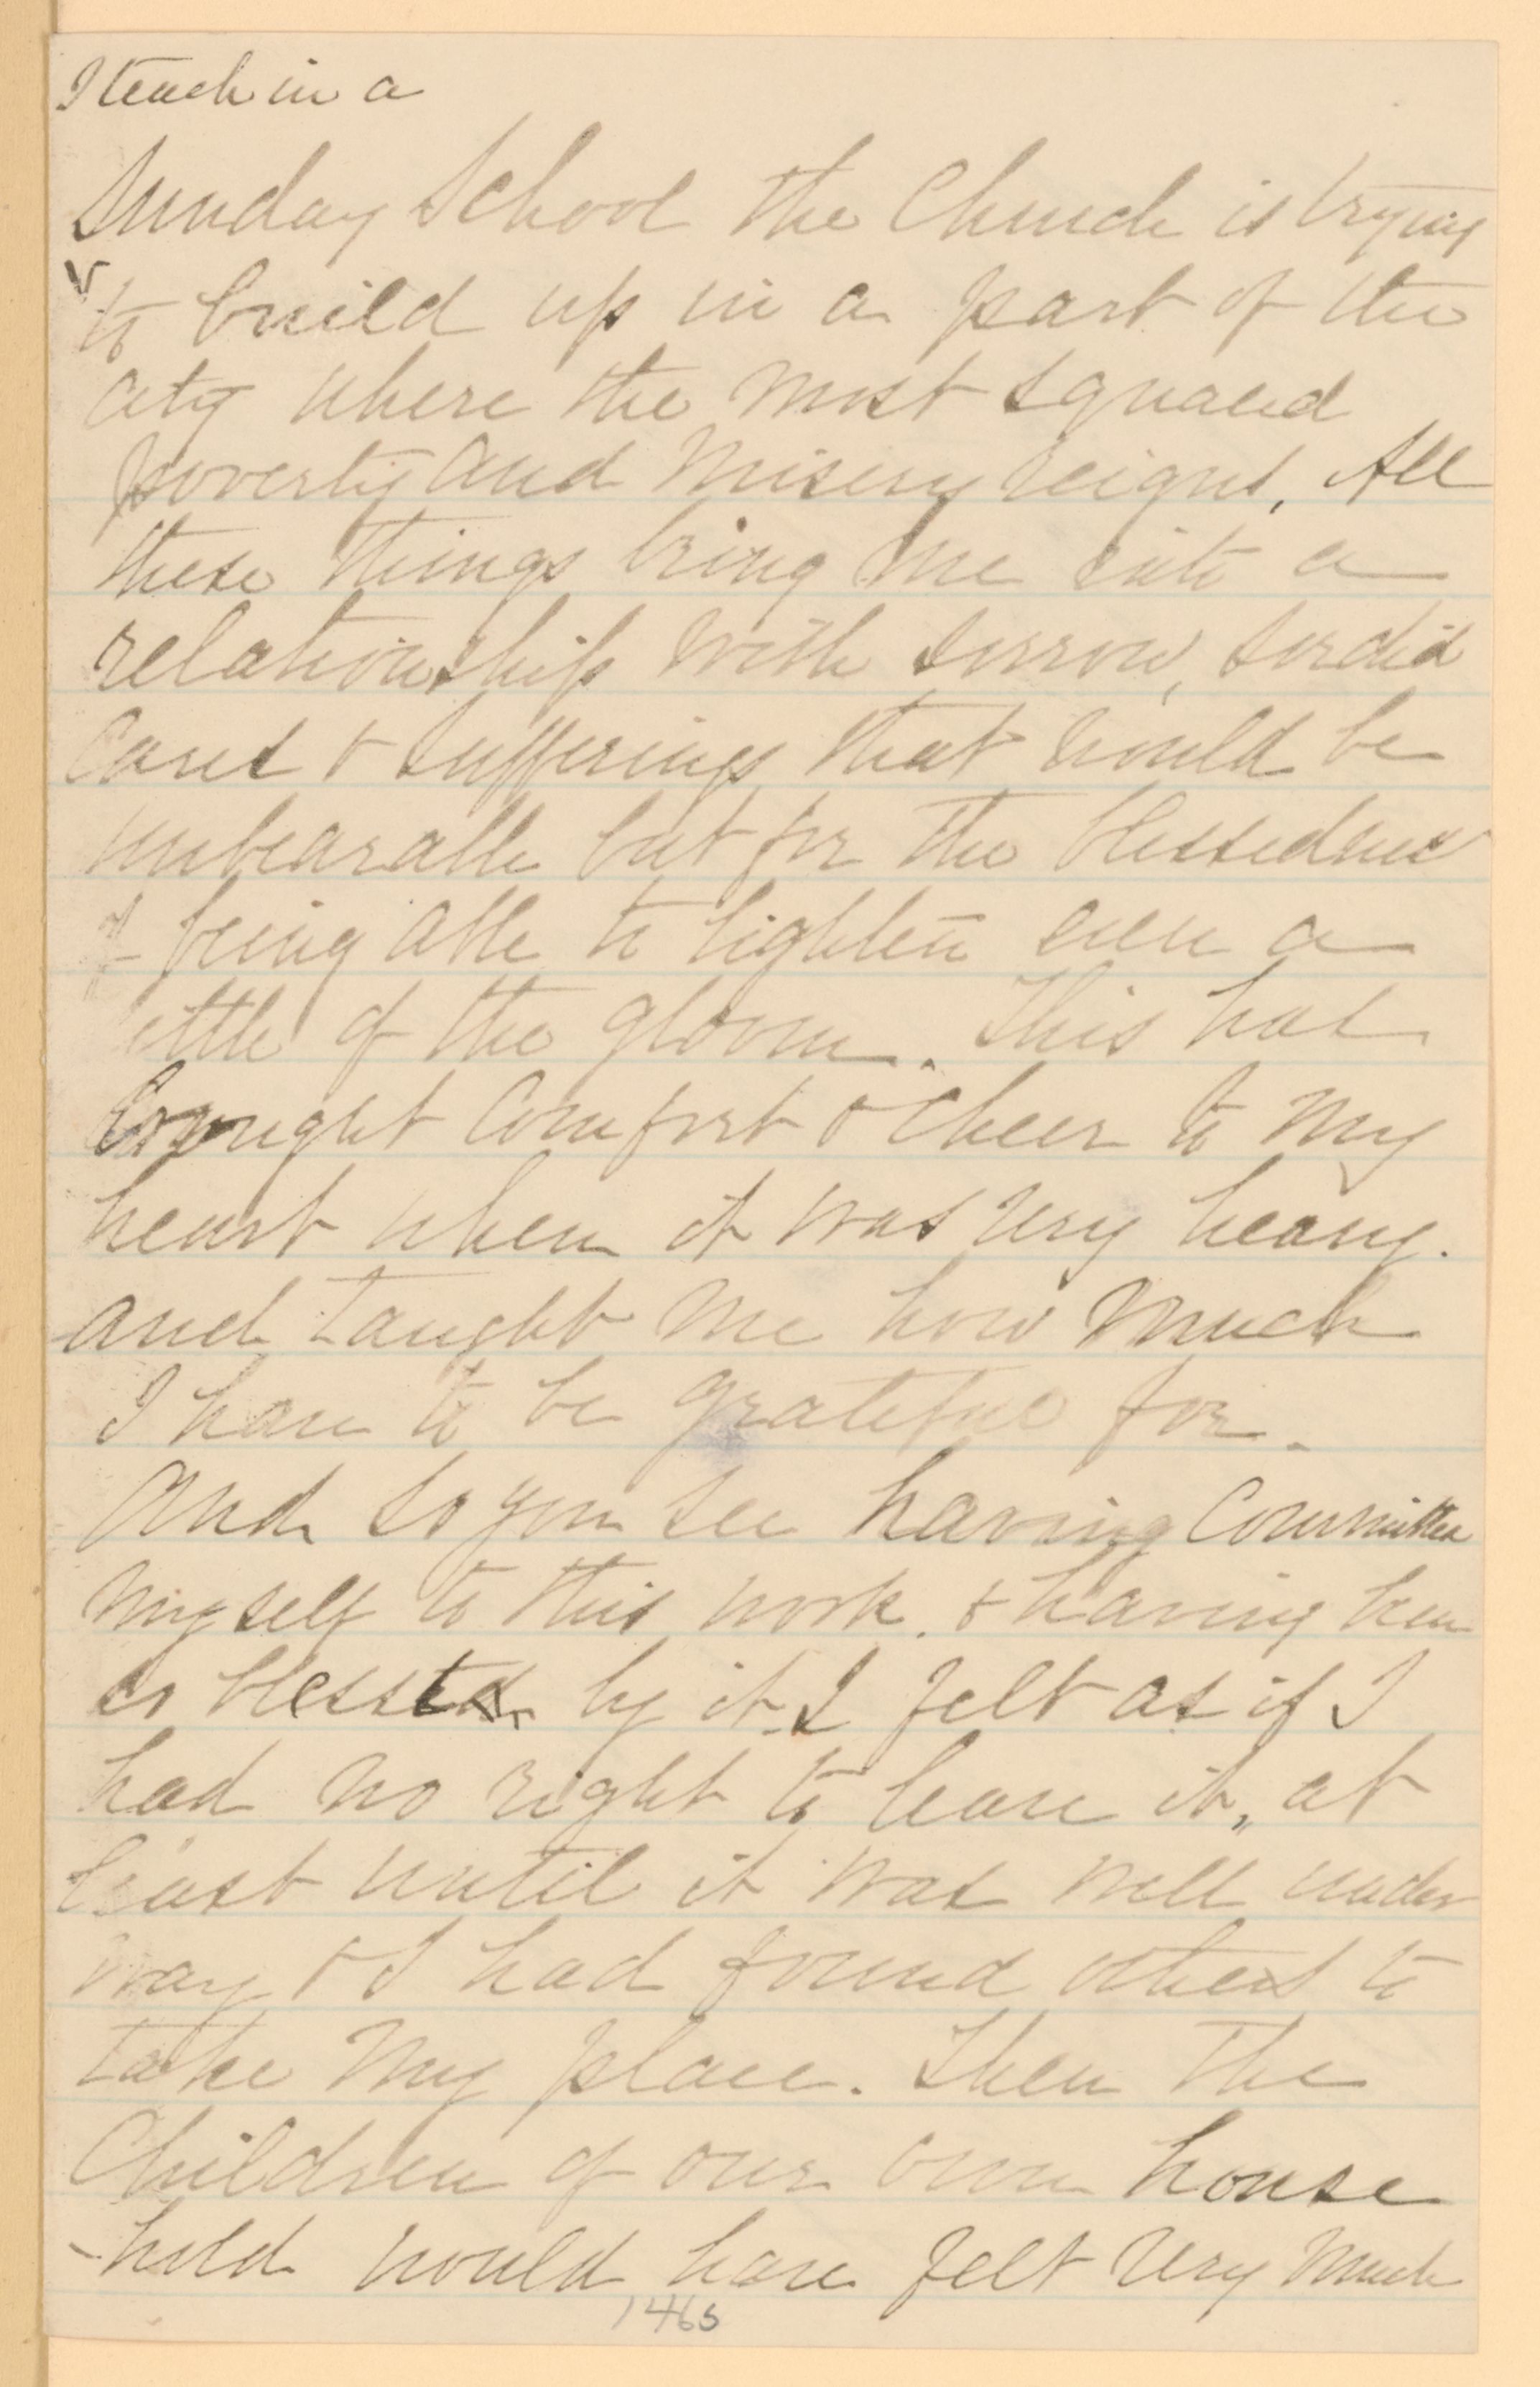 I teach in a
Sunday School the Church is trying
to build up in a part of the
city where the most squalid
poverty and misery reigns. All
these things bring me into a
relationship with sorrow, sordid
cares & sufferings that would be
unbearable but for the blessedness
of being able to lighten even a
little of the gloom. This has
brought comfort & cheer to my
heart when it was very heavy.
and taught me how much
I have to be grateful for.
And so you see having committed
myself to this work. & having been
so blessed by it I felt as if I
had no right to leave it, at
least until it was well under
way & I had found others to
take my place. Then the
Children of our own house
-hold would have felt very much
1465